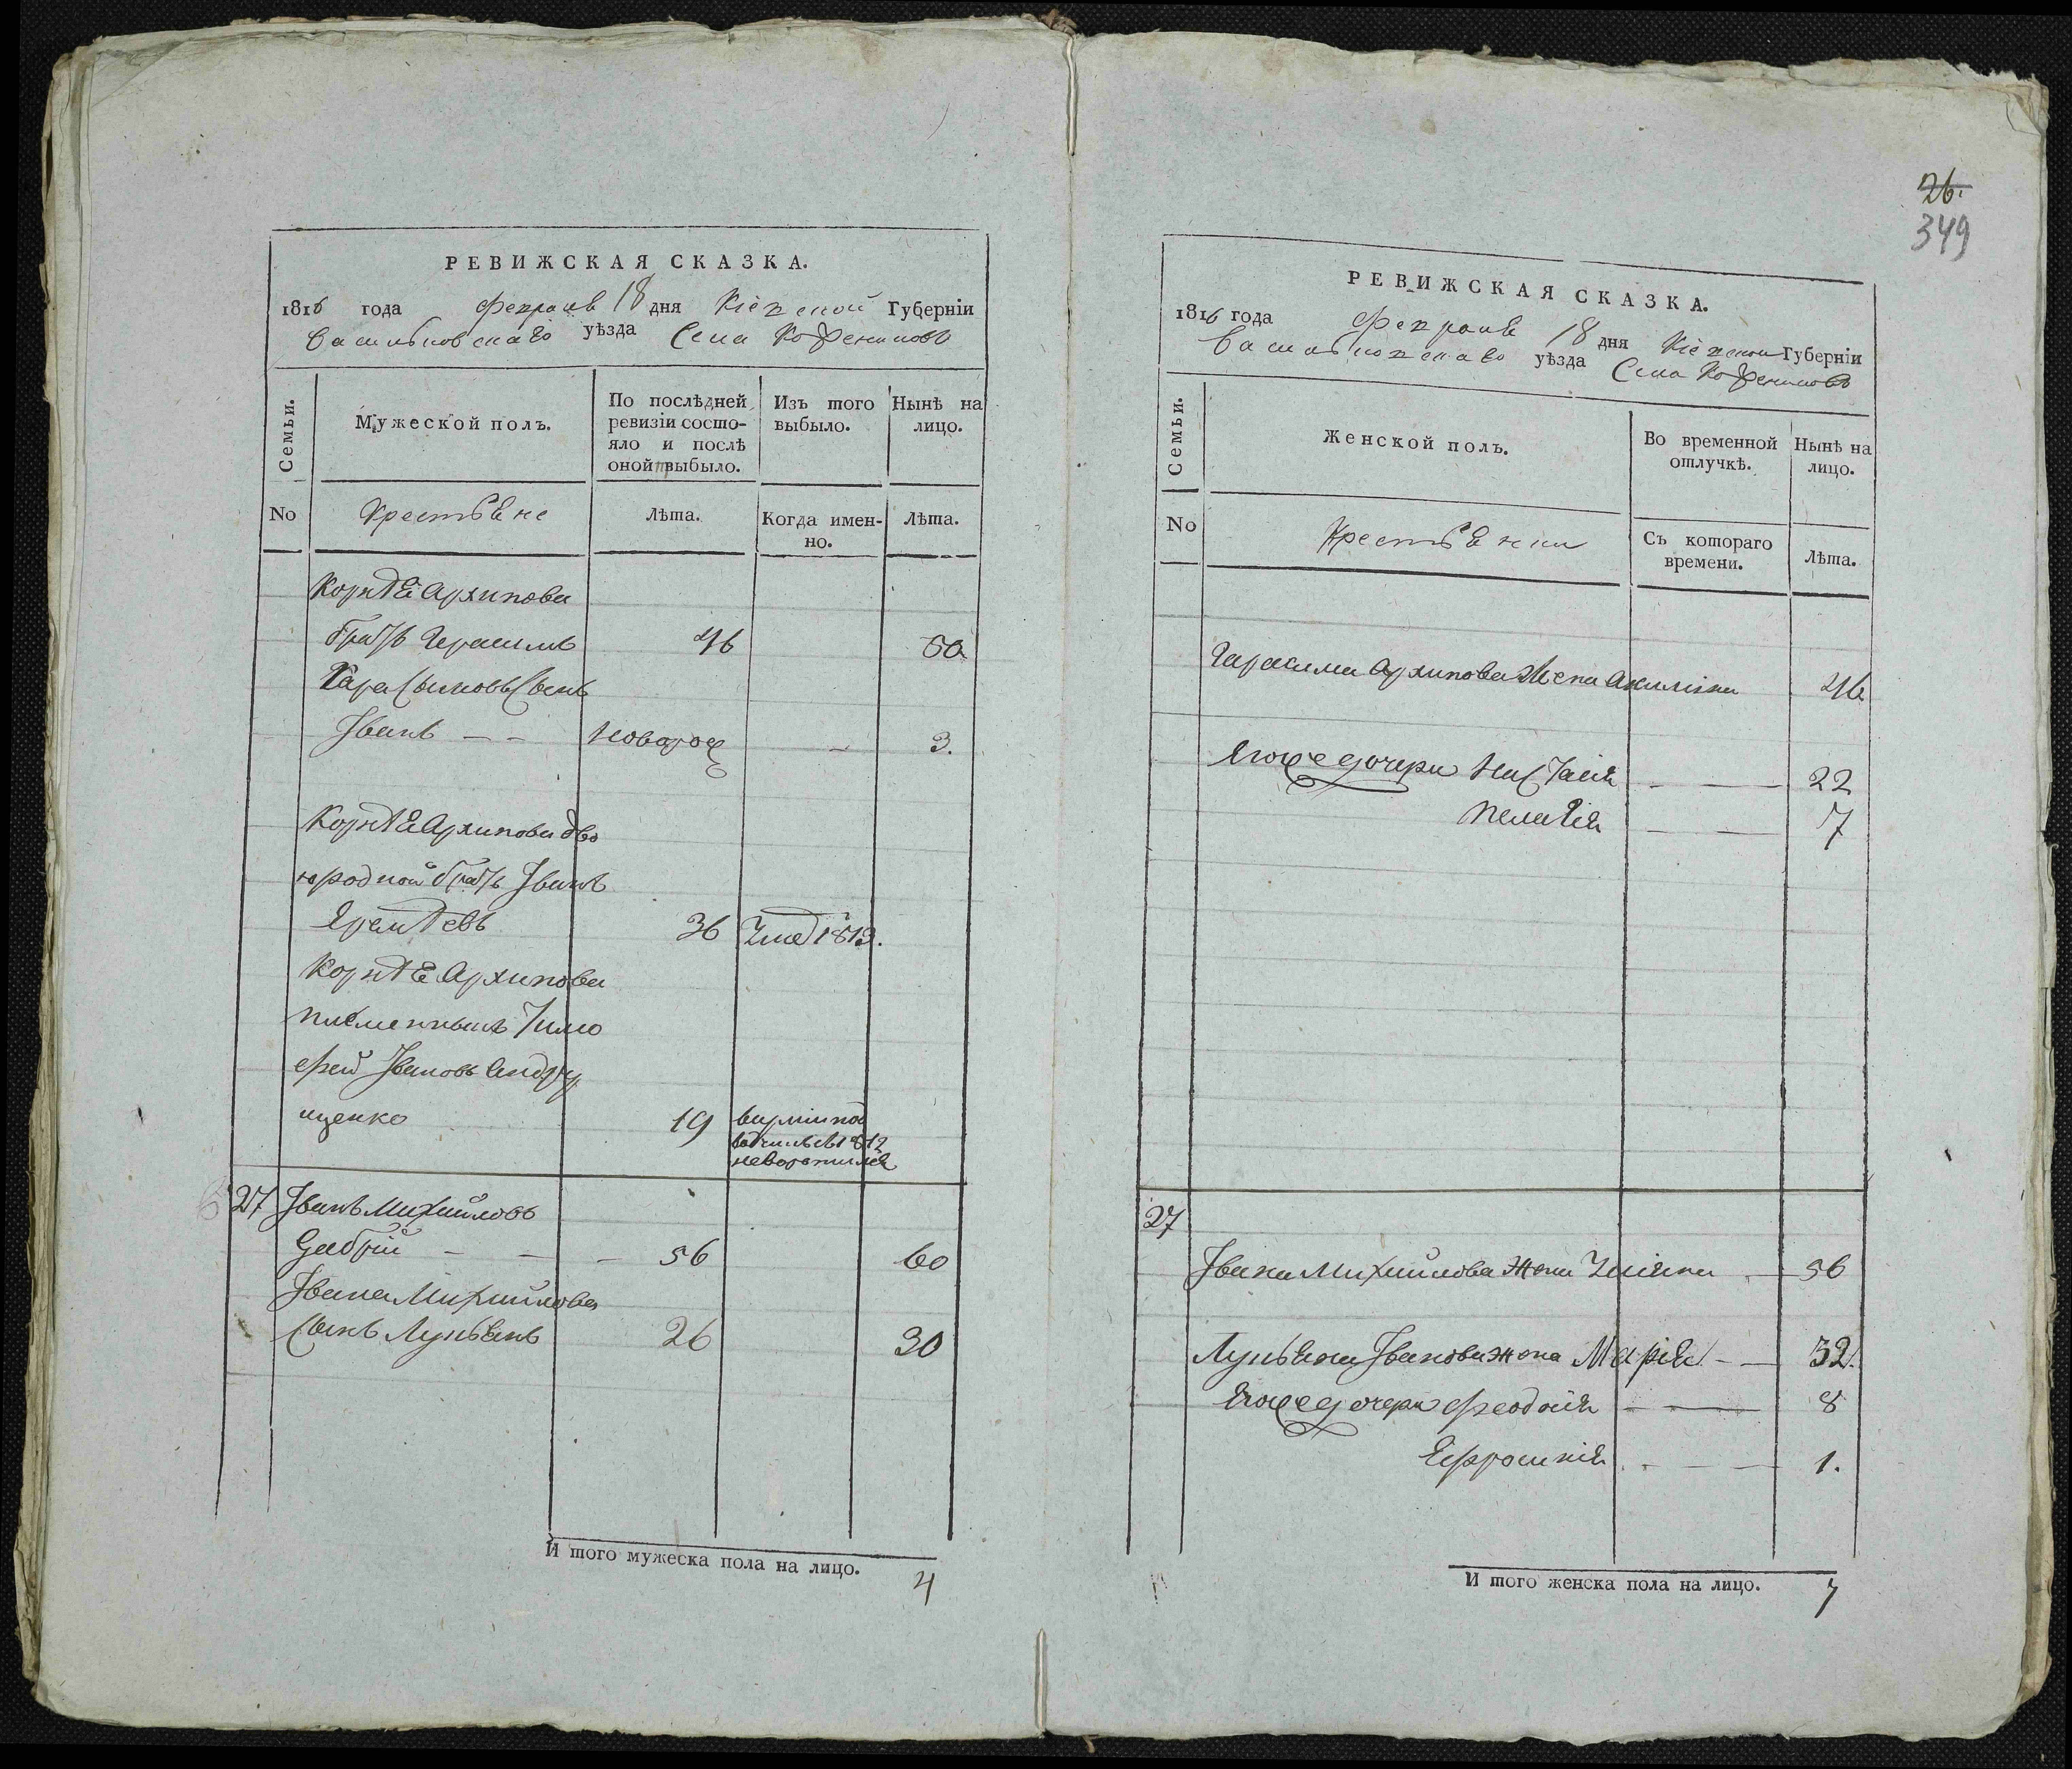 РЕВИЖСКАЯ СКАЗКА.
1816 года Февраля 18 дня Кіевской Губерніи
Васильковскаго уѣзда Села Кофенщовъ
Семьи.
Мужеской полъ.
По послѣдней ревизіи состояло и послѣ оной выбыло.
Изъ того выбыло.
Нынѣ на лицо.
No
Крестьяне
Лѣта.
Когда именно.
Лѣта.
Корнѣя Архипова
братъ Герасимъ 46 50
Герасимовъ сынъ
Іванъ — — новорож — 3.
Корнѣя Архипова дво
юродной братъ Іванъ
Яремѣевъ 36 Умре 1813.
Корнѣя Архипова
племенникъ Тимо
фей Івановъ Андру
щенко 19
1812
невозвратился
27 Іванъ Михайловъ
— — — 56 60
Івана Михайлова
сынъ Лукьянъ 26 30
И того мужеска пола на лицо. 4
26.
349
РЕВИЖСКАЯ СКАЗКА.
1816 года Февраля 18 дня Кіевской Губерніи
Васильковскаго уѣзда Села
Семьи.
Женской полъ.
Во временной отлучкѣ.
Нынѣ на лицо.
No
Крестьянки
Съ котораго времени.
Лѣта.
Герасима Архипова жена Акилина 46
Егоже дочери Настасія — — 22
Пелагія — — 7
27
Івана Михайлова жона Уліяна — 56
Лукьяна Іванова жона Марія — — 32.
Егоже дочери Феодосія — — 8
Ефросинія — — — 1.
И того женска пола на лицо. 7